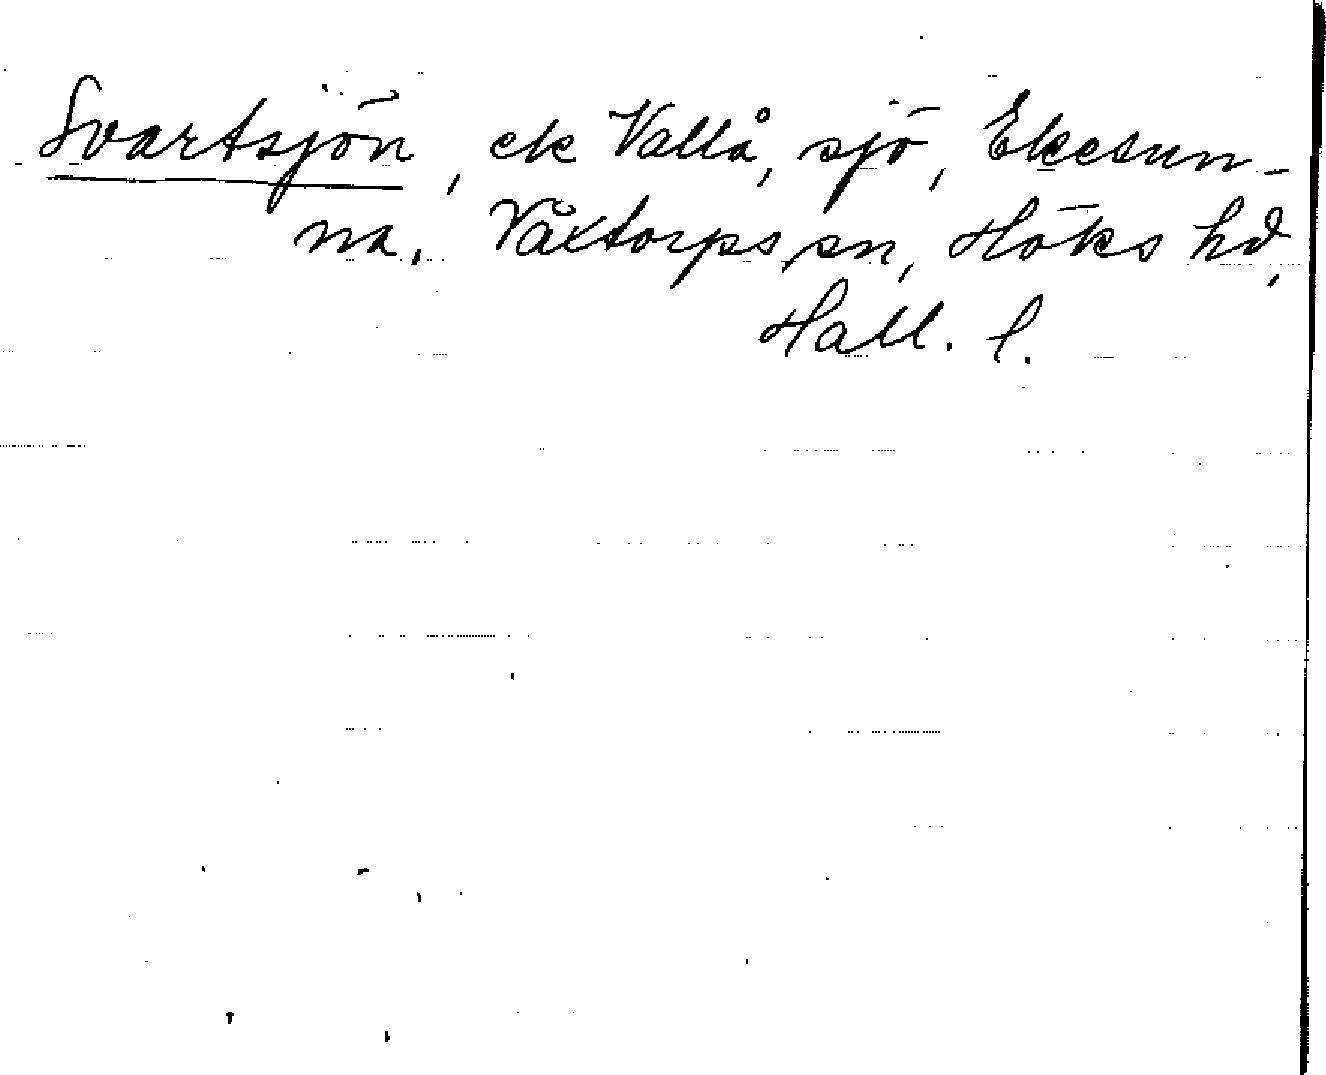 Svartsjön, ek Vallå, sjö, Ekesun-
na, Våxtorps sn, Höks hd,
Hall. l.